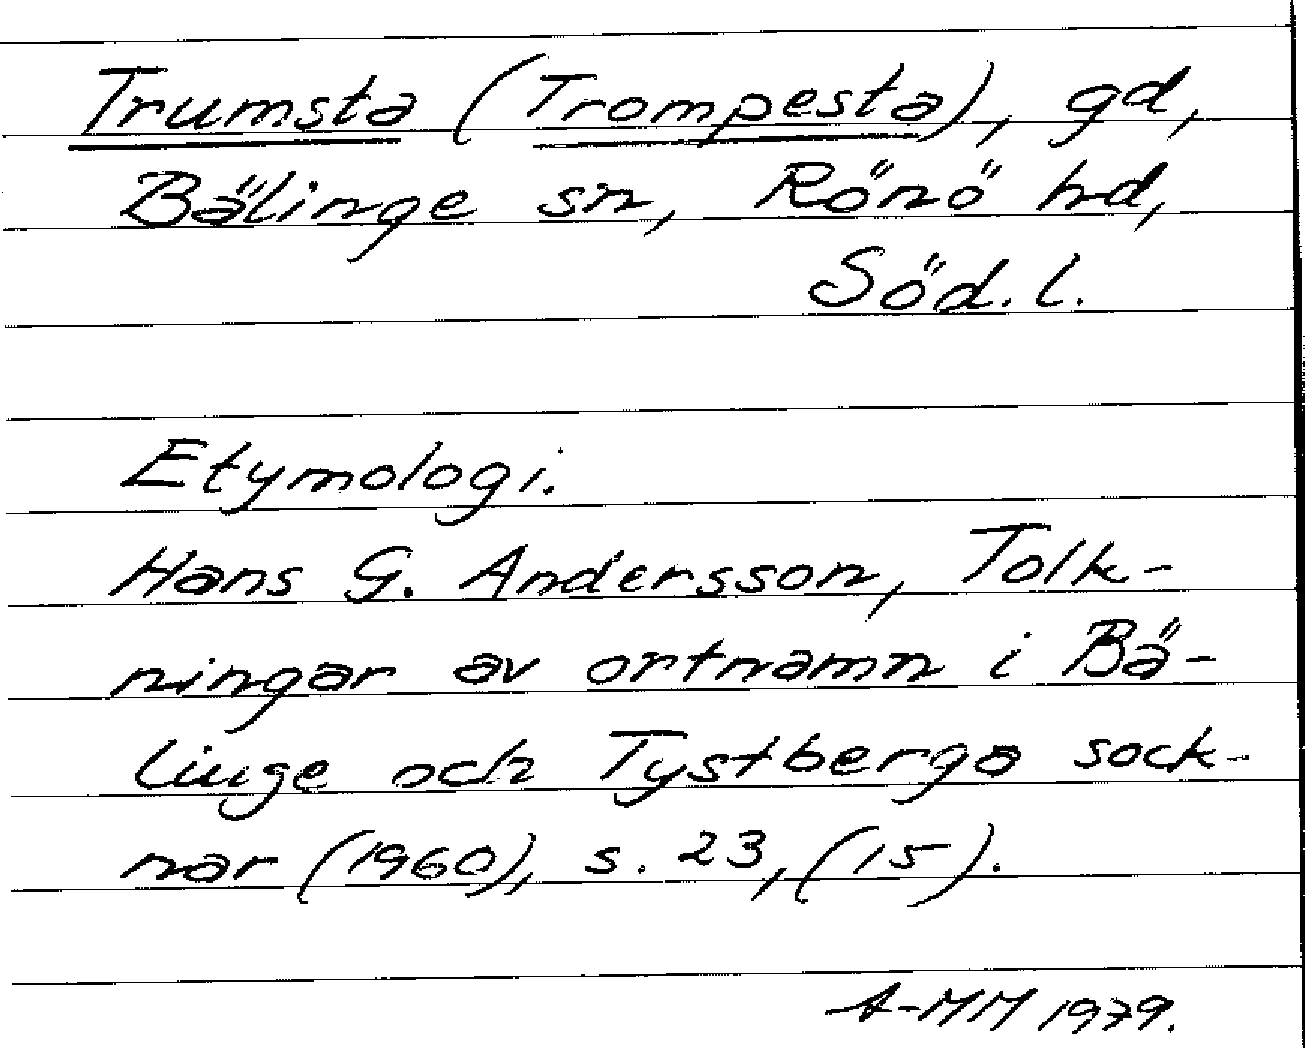 Trumsta (Trompesta), gd,
Bälinge sn, Rönö hd,
Söd. l.
Etymologi.
Hans G. Andersson, Tolk-
ningar av ortnamn i Bä-
linge och Tystberga sock-
nar (1960), s. 23, (15).
A-MM 1979.